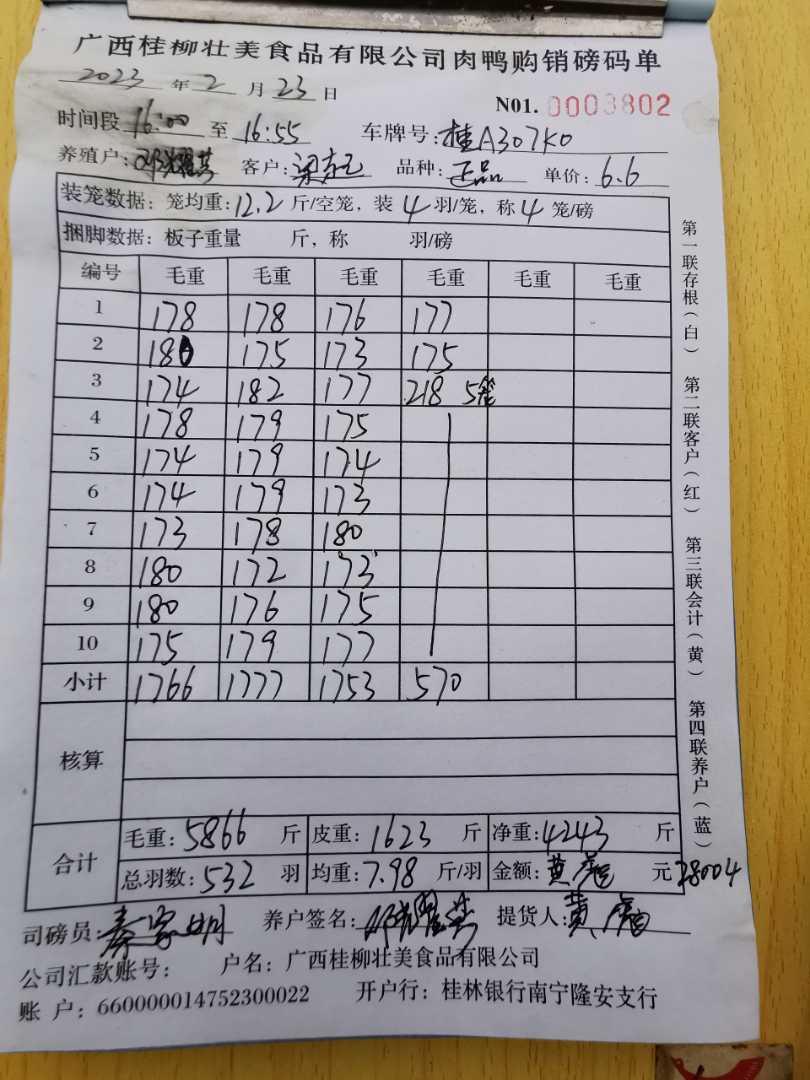 广西桂柳壮美食品有限公司肉鸭购销磅码单
2023 年 2 月 23 日
N01. 0003802
时间段 16:00 至 16:55 车牌号: 桂A307K0
养殖户: 邓耀 客户: 梁 品种: 正品 单价: 6.6
装笼数据: 笼均重: 12.2 斤/空笼, 装 4 羽/笼, 称 4 笼/磅
捆脚数据: 板子重量 斤, 称 羽/磅
编号 毛重 毛重 毛重 毛重 毛重 毛重
1 178 178 176 177
2 180 175 173 175
3 174 182 177 218 5笼
4 178 179 175
5 174 179 174
6 174 179 173
7 173 178 180
8 180 172 173
9 180 176 175
10 175 179 177
小计 1766 1777 1753 570
核算
合计
毛重: 5866 斤 皮重: 1623 斤 净重: 4243 斤
总羽数: 532 羽 均重: 7.98 斤/羽 金额: 黄 元 28004
司磅员: 秦家明 养户签名: 邓耀 提货人: 黄
公司汇款账号: 户名: 广西桂柳壮美食品有限公司
账 户: 660000014752300022 开户行: 桂林银行南宁隆安支行
第一联存根(白) 第二联客户(红) 第三联会计(黄) 第四联养户(蓝)